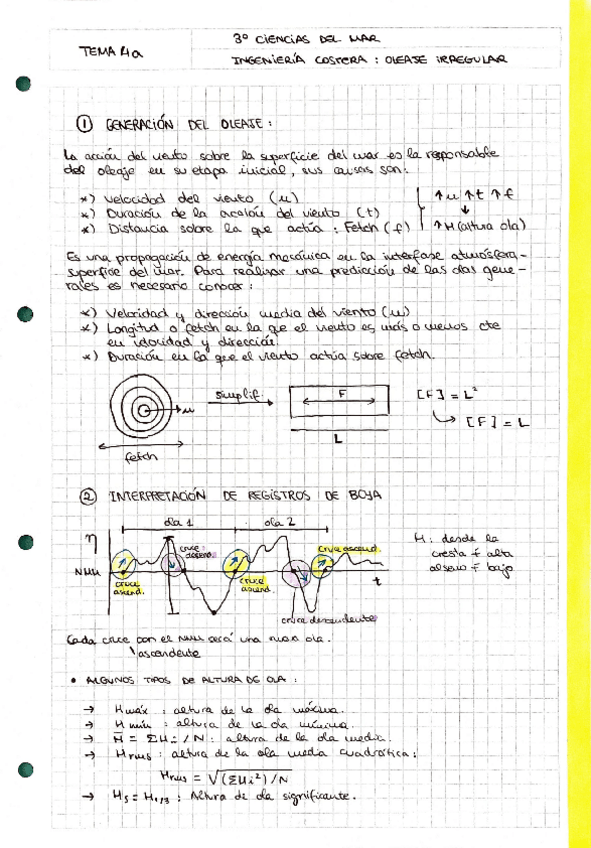 TEMA 4a
3º CIENCIAS DEL MAR
INGENIERÍA COSTERA : OLEAJE IRREGULAR
① GENERACIÓN DEL OLEAJE :
La acción del viento sobre la superficie del mar es la responsable
del oleaje en su etapa inicial, sus causas son:
*) Velocidad del viento (u)
*) Duración de la acción del viento (t)
*) Distancia sobre la que actúa : Fetch (f)
↑u ↑t ↑f
↓
↑H (altura ola)
Es una propagación de energía mecánica en la interfase atmósfera-
superficie del mar. Para realizar una predicción de las olas gene-
rales es necesario conocer :
*) Velocidad y dirección media del viento (u)
*) Longitud o fetch en la que el viento es más o menos cte
en velocidad y dirección.
*) Duración en la que el viento actúa sobre fetch.
u
fetch
simplif
F
L
[F] = L²
[F] = L
② INTERPRETACIÓN DE REGISTROS DE BOYA
ola 1
ola 2
η
NMM
cruce
ascend.
cruce
descend.
cruce
ascend.
cruce ascend.
t
cruce descendente
H : desde la
cresta + alta
al seno + bajo
Cada cruce por el NMM será una nueva ola.
ascendente
• ALGUNOS TIPOS DE ALTURA DE OLA :
→ Hmáx : altura de la ola máxima.
→ H mín : altura de la ola mínima.
→ H̄ = ΣHi / N : altura de la ola media.
→ Hrms : altura de la ola media cuadrática :
Hrms = √(ΣHi²) / N
→ Hs = H1/3 : Altura de ola significante.